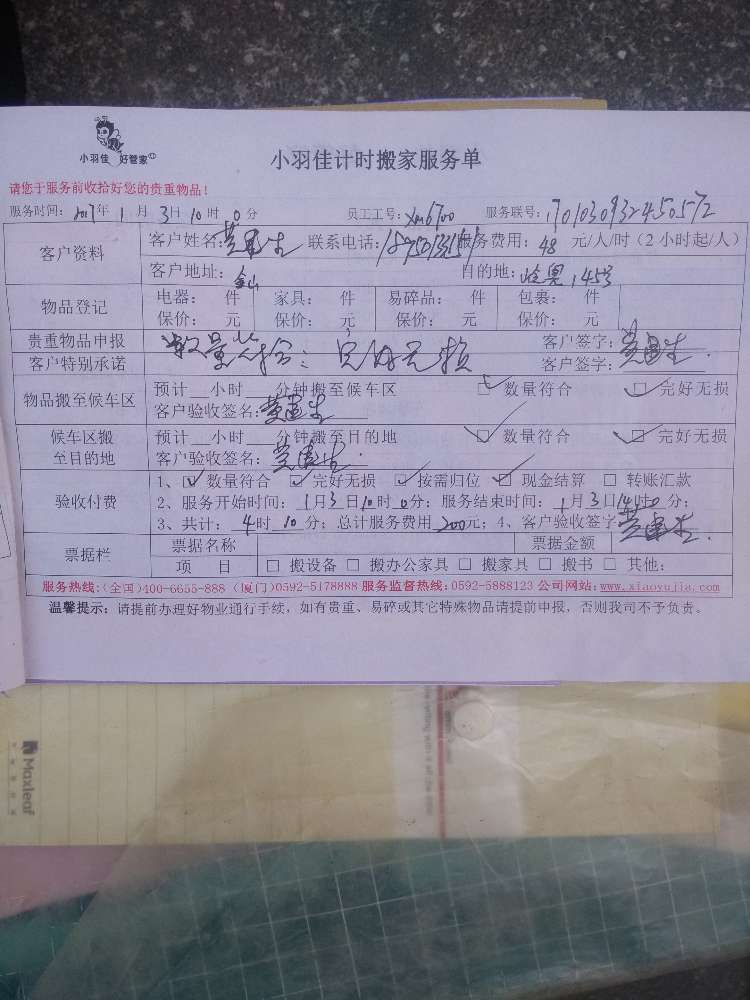 小羽佳 好管家
小羽佳计时搬家服务单
请您于服务前收拾好您的贵重物品!
服务时间: 2017年 1 月 3日 10时 0分 员工工号: xm6700 服务联号: 1701030932450572
客户资料
客户姓名: 联系电话: 服务费用: 48 元/人/时(2小时起/人)
客户地址: 金山 目的地: 145号
物品登记
电器: 件 家具: 件 易碎品: 件 包裹: 件
保价: 元 保价: 元 保价: 元 保价: 元
贵重物品申报 客户签字:
客户特别承诺 客户签字:
物品搬至候车区
预计__小时__分钟搬至候车区 ☑ 数量符合 ☑ 完好无损
客户验收签名:
候车区搬至目的地
预计__小时__分钟搬至目的地 ☑ 数量符合 ☑ 完好无损
客户验收签名:
验收付费
1、☑ 数量符合 ☑ 完好无损 ☑ 按需归位 ☑ 现金结算 □ 转账汇款
2、服务开始时间: 1月3日10时0分; 服务结束时间: 1月3日14时10分;
3、共计: 4时10分; 总计服务费用 200元; 4、客户验收签字
票据栏
票据名称 票据金额
项 目 □ 搬设备 □ 搬办公家具 □ 搬家具 □ 搬书 □ 其他:
服务热线:(全国)400-6655-888 (厦门)0592-5178888 服务监督热线:0592-5888123 公司网站:www.xiaoyujia.com
温馨提示: 请提前办理好物业通行手续,如有贵重、易碎或其它特殊物品请提前申报,否则我司不予负责。
Maxleaf